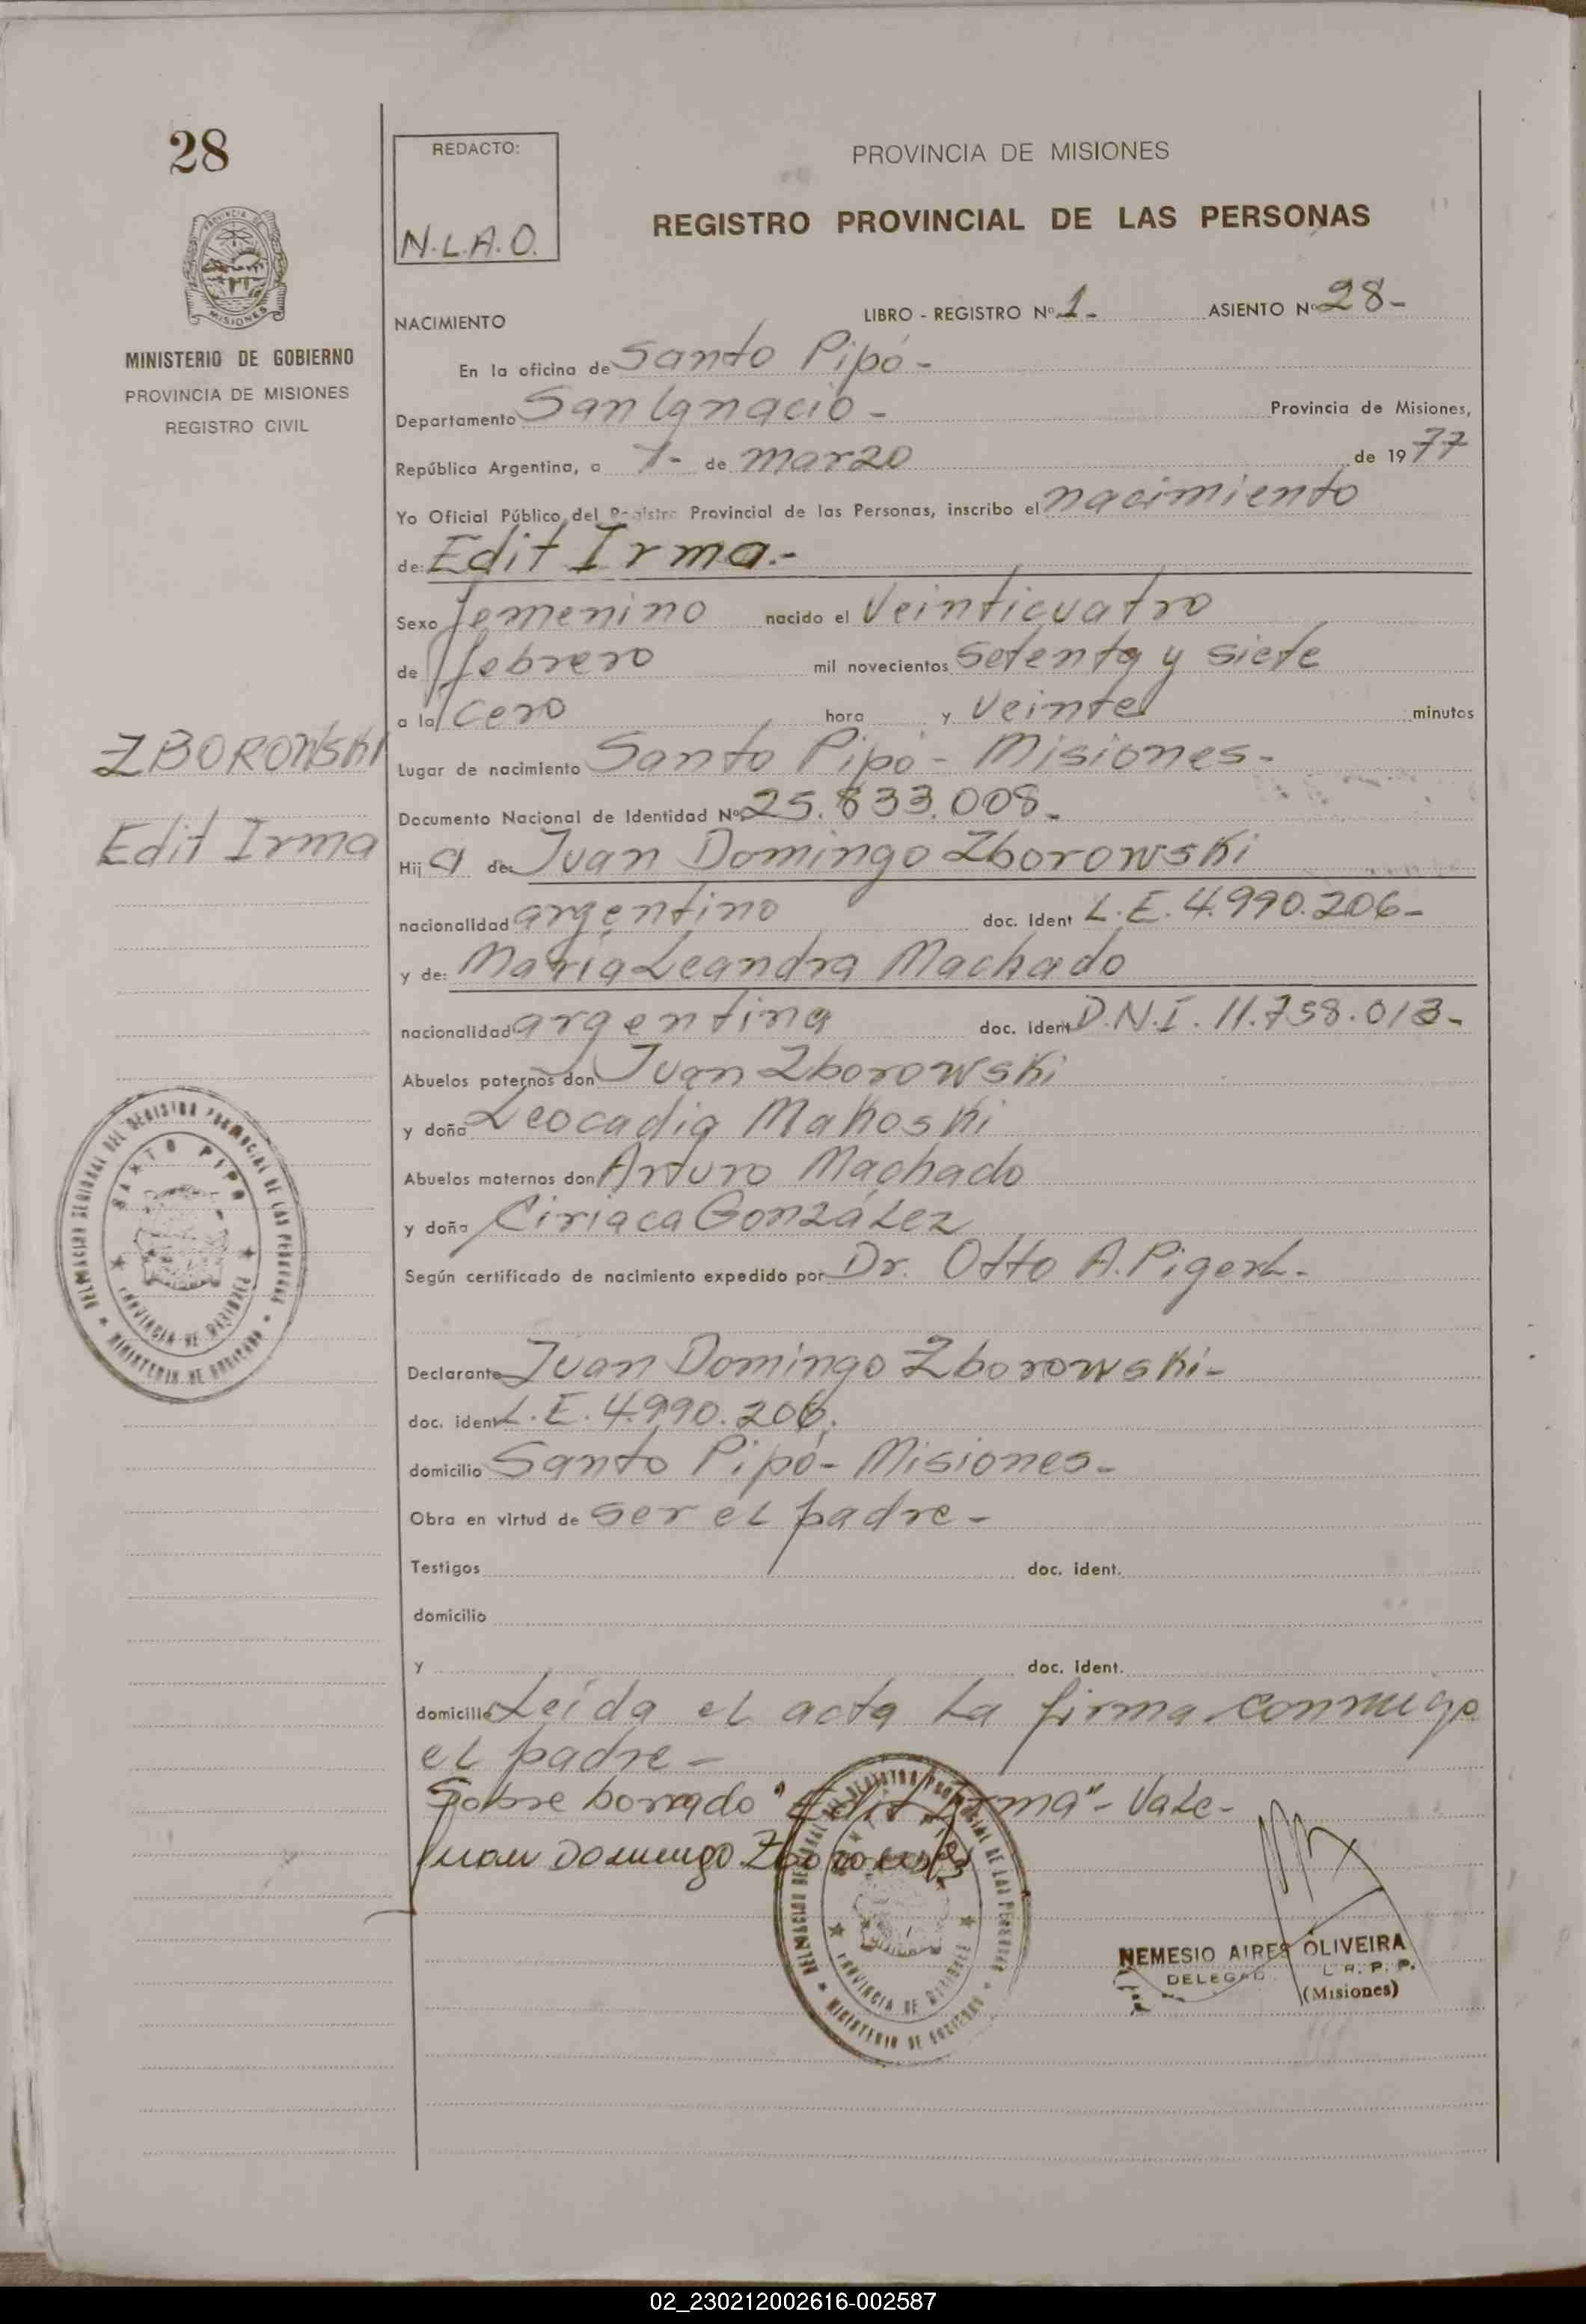 28
REDACTO:
N.L.A.O.
PROVINCIA DE MISIONES
REGISTRO PROVINCIAL DE LAS PERSONAS
PROVINCIA DE
MISIONES
MINISTERIO DE GOBIERNO
PROVINCIA DE MISIONES
REGISTRO CIVIL
NACIMIENTO LIBRO - REGISTRO Nº 1- ASIENTO Nº 28-
En la oficina de Santo Pipó-
Departamento San Ignacio- Provincia de Misiones,
República Argentina, a 1- de marzo de 1977
Yo Oficial Público del Registro Provincial de las Personas, inscribo el nacimiento
de: Edit Irma.-
Sexo femenino nacido el Veinticuatro
de febrero mil novecientos setenta y siete
a la cero hora y veinte minutos
ZBOROWSKI
Lugar de nacimiento Santo Pipó - Misiones-
Documento Nacional de Identidad Nº 25.833.008-
Edit Irma
Hija de: Juan Domingo Zborowski
nacionalidad argentino doc. ident L.E. 4.990.206-
y de: María Leandra Machado
nacionalidad argentina doc. ident D.N.I. 11.758.013-
Abuelos paternos don Juan Zborowski
y doña Leocadia Makoski
Abuelos maternos don Arturo Machado
y doña Ciriaca González
Según certificado de nacimiento expedido por Dr. Otto A.
DELEGACION REGIONAL DEL REGISTRO PROVINCIAL DE LAS PERSONAS
SANTO PIPO
PROVINCIA DE MISIONES
MINISTERIO DE GOBIERNO
Declarante Juan Domingo Zborowski-
doc. ident L.E. 4.990.206.
domicilio Santo Pipó- Misiones-
Obra en virtud de ser el padre-
Testigos doc. ident.
domicilio
y doc. ident.
domicilio Leída el acta la firma conmigo
el padre-
Sobre borrado "Edit Irma"- Vale-
Juan Domingo Zborowski
DELEGACION REGIONAL DEL REGISTRO PROVINCIAL DE LAS PERSONAS
PROVINCIA DE MISIONES
MINISTERIO DE GOBIERNO
NEMESIO AIRES OLIVEIRA
DELEGAD
(Misiones)
02_230212002616-002587